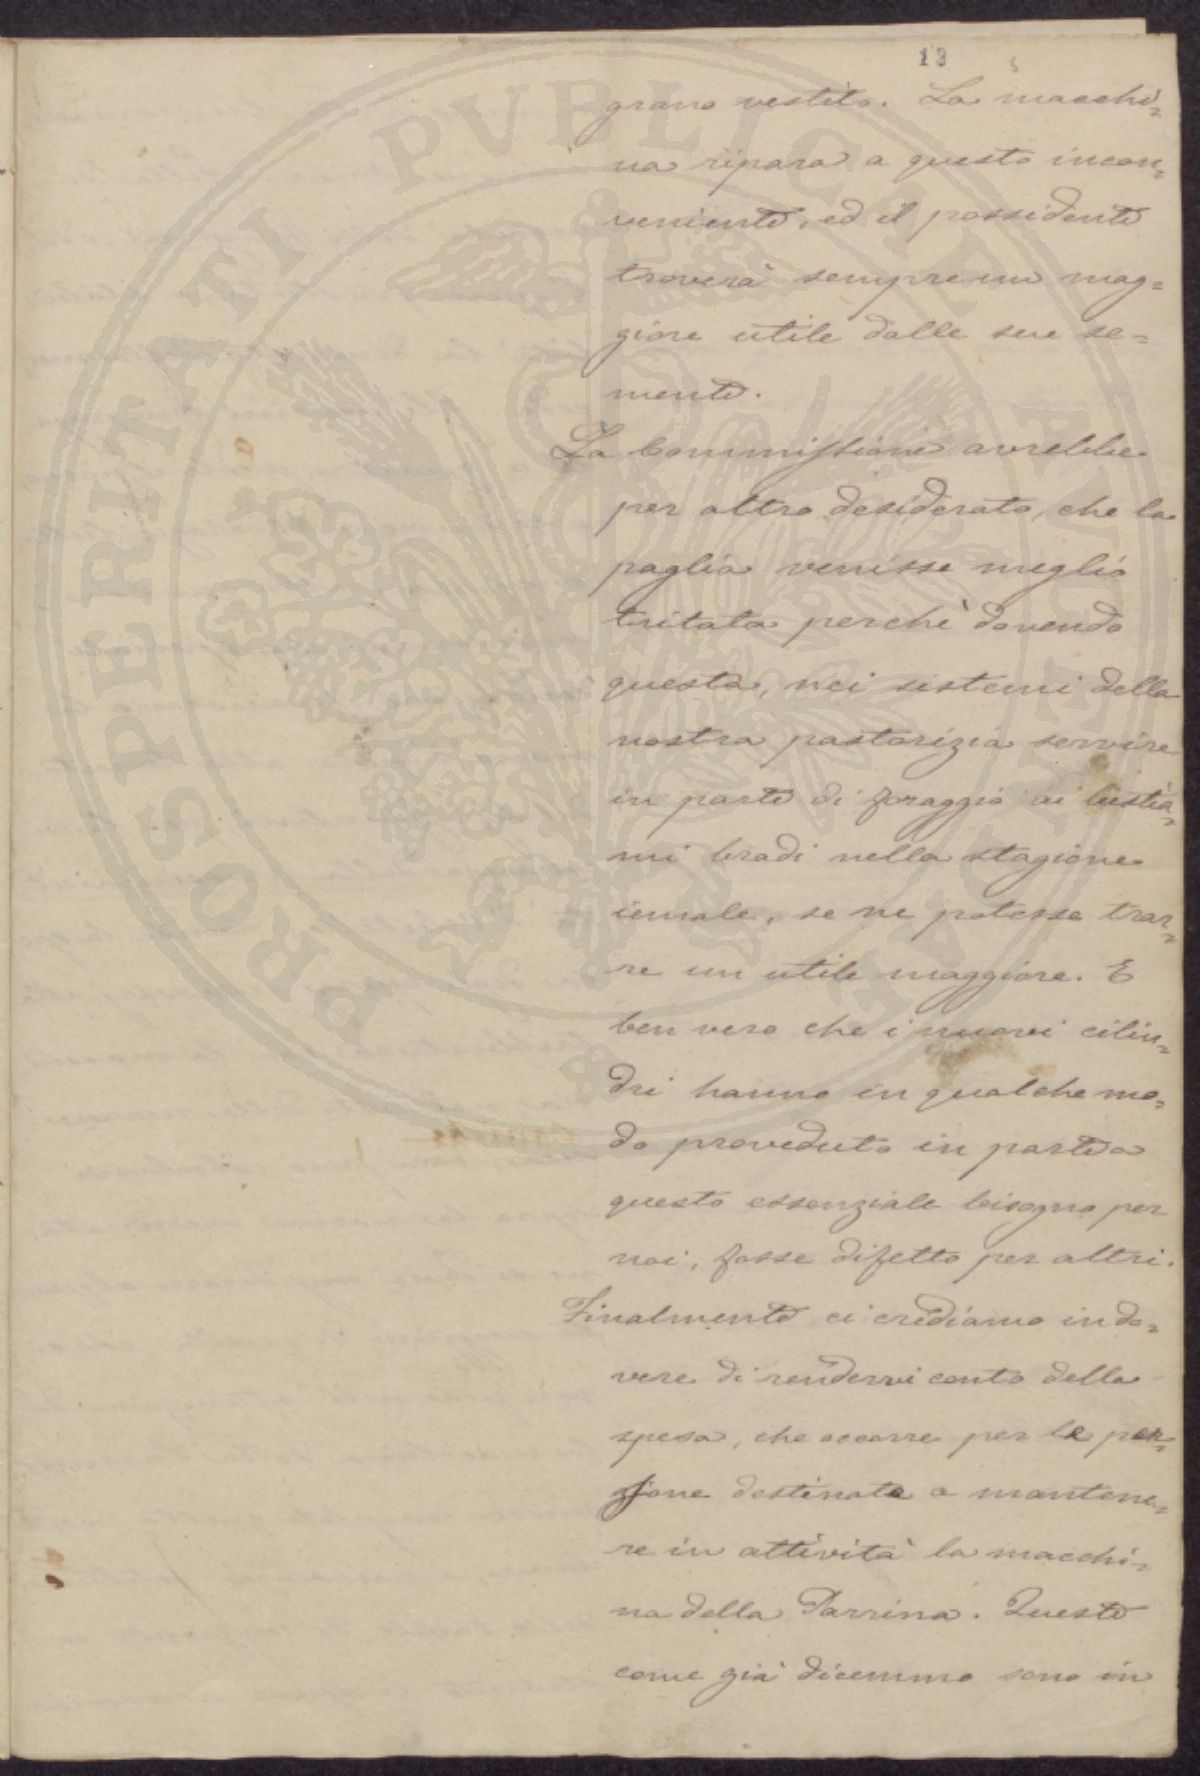 13
grano vestito. La macchi=
na ripara a questo incon=
veniente, ed il possidente
troverà sempre un mag=
giore utile dalle sue se=
mente.
La Commissione avrebbe
per altro desiderato, che la
paglia venisse meglio
tritata perchè dovendo
questa, nei sistemi della
nostra pastorizia servire
in parte di foraggio ai bestia=
mi bradi nella stagione
iemale, se ne potesse trar=
re un utile maggiore. E
ben vero che i nuovi cilin=
dri hanno in qualche mo=
do proveduto in parte a
questo essenziale bisogno per
noi, fosse difetto per altri.
Finalmente ci crediamo in do=
vere di rendervi conto della
spesa, che occorre per le per=
sone destinate a mantene=
re in attività la macchi=
na della Parrina. Queste
come già dicemmo sono in
PROSPERITATI PVBLICAE AVGENDAE